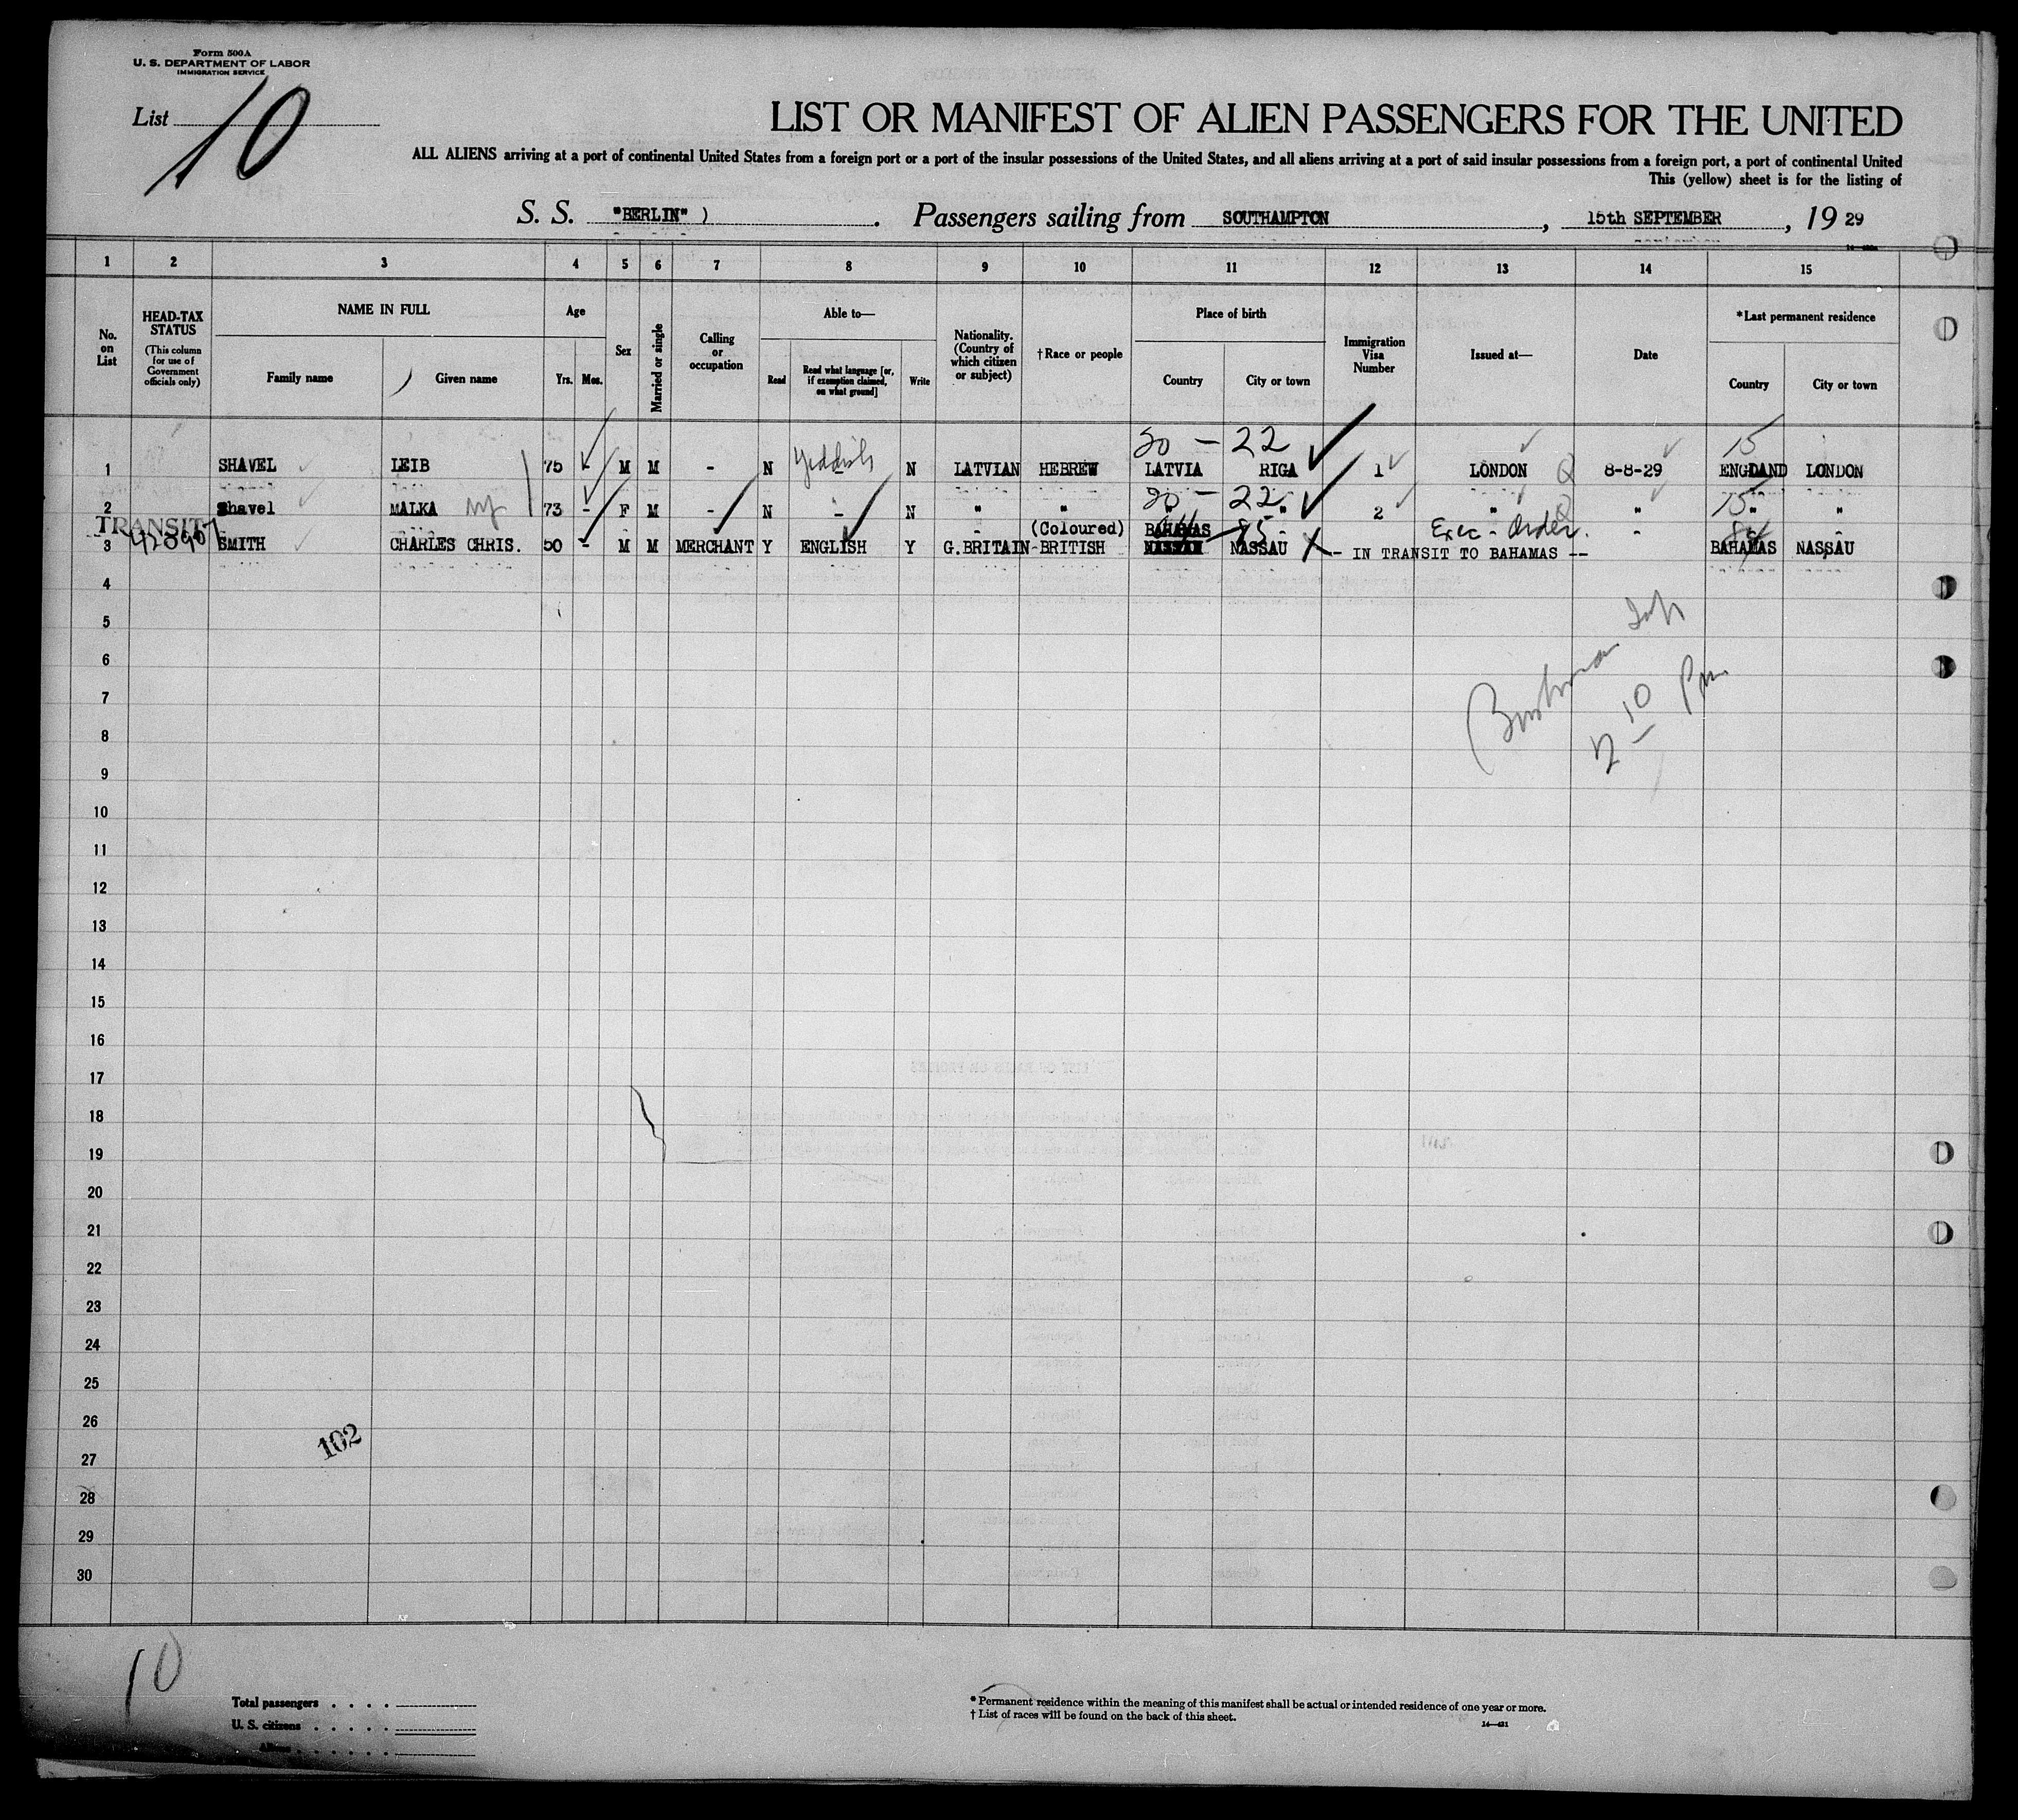 Form 500A
U. S. DEPARTMENT OF LABOR
IMMIGRATION SERVICE
List 10
LIST OR MANIFEST OF ALIEN PASSENGERS FOR THE UNITED
ALL ALIENS arriving at a port of continental United States from a foreign port or a port of the insular possessions of the United States, and all aliens arriving at a port of said insular possessions from a foreign port, a port of continental United
This (yellow) sheet is for the listing of
S. S. "BERLIN" ) . Passengers sailing from SOUTHAMPTON , 15th SEPTEMBER , 19 29
1 2 3 4 5 6 7 8 9 10 11 12 13 14 15
No. on List
HEAD-TAX STATUS (This column for use of Government officials only)
NAME IN FULL
Family name Given name
Age
Yrs. Mos.
Sex
Married or single
Calling or occupation
Able to—
Read Read what language [or, if exemption claimed, on what ground] Write
Nationality. (Country of which citizen or subject)
†Race or people
Place of birth
Country City or town
Immigration Visa Number
Issued at—
Date
*Last permanent residence
Country City or town
20 — 22 15
1 SHAVEL LEIB 75 - M M - N Yiddish - N LATVIAN HEBREW LATVIA RIGA 1 LONDON 8-8-29 ENGLAND LONDON
20 — 22 15
2 Shavel MALKA 73 - F M - N - N " " " " 2 " " " "
TRANSIT (Coloured) BAHAMAS 85 Exec - Order.
3 SMITH CHARLES CHRIS. 50 - M M MERCHANT Y ENGLISH Y G.BRITAIN-BRITISH NASSAU -- IN TRANSIT TO BAHAMAS -- BAHAMAS NASSAU
4
5
6
7
8
9
10
11
12
13
14
15
16
17
18
19
20
21
22
23
24
25
26
102
27
28
29
30
10
Total passengers . . . .
U. S. citizens . . . . .
Aliens . . . . . .
* Permanent residence within the meaning of this manifest shall be actual or intended residence of one year or more.
† List of races will be found on the back of this sheet.